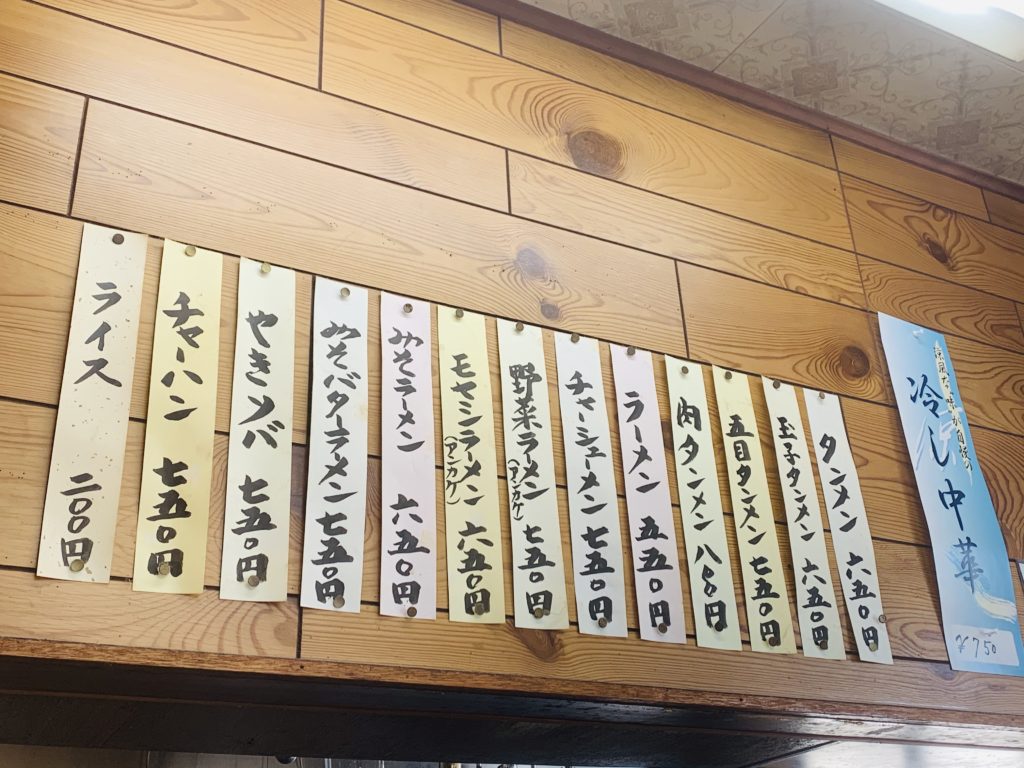 冷し中華
¥750
タンメン 六五〇円
玉子タンメン 六五〇円
五目タンメン 七五〇円
肉タンメン 八〇〇円
ラーメン 五五〇円
チャーシューメン 七五〇円
野菜ラーメン 七五〇円
(アンカケ)
モヤシラーメン 六五〇円
(アンカケ)
みそラーメン 六五〇円
みそバターラーメン 七五〇円
やきソバ 七五〇円
チャーハン 七五〇円
ライス 二〇〇円